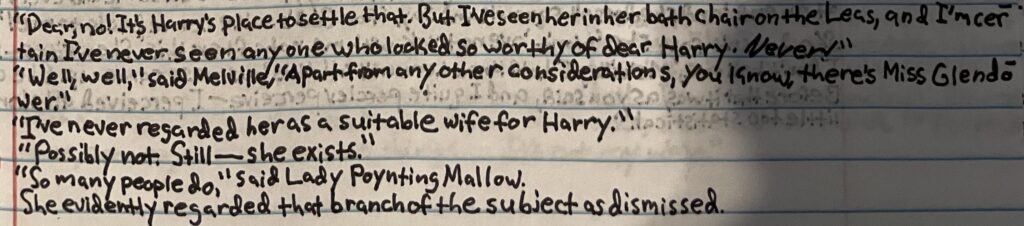 "Dear, no! It's Harry's place to settle that. But I've seen her in her bath chair on the Leas, and I'm cer-
tain I've never seen anyone who looked so worthy of dear Harry. Never!"
"Well, well," said Melville, "Apart from any other considerations, you know, there's Miss Glendo-
wer."
"I've never regarded her as a suitable wife for Harry."
"Possibly not. Still—she exists."
"So many people do," said Lady Poynting Mallow.
She evidently regarded that branch of the subject as dismissed.